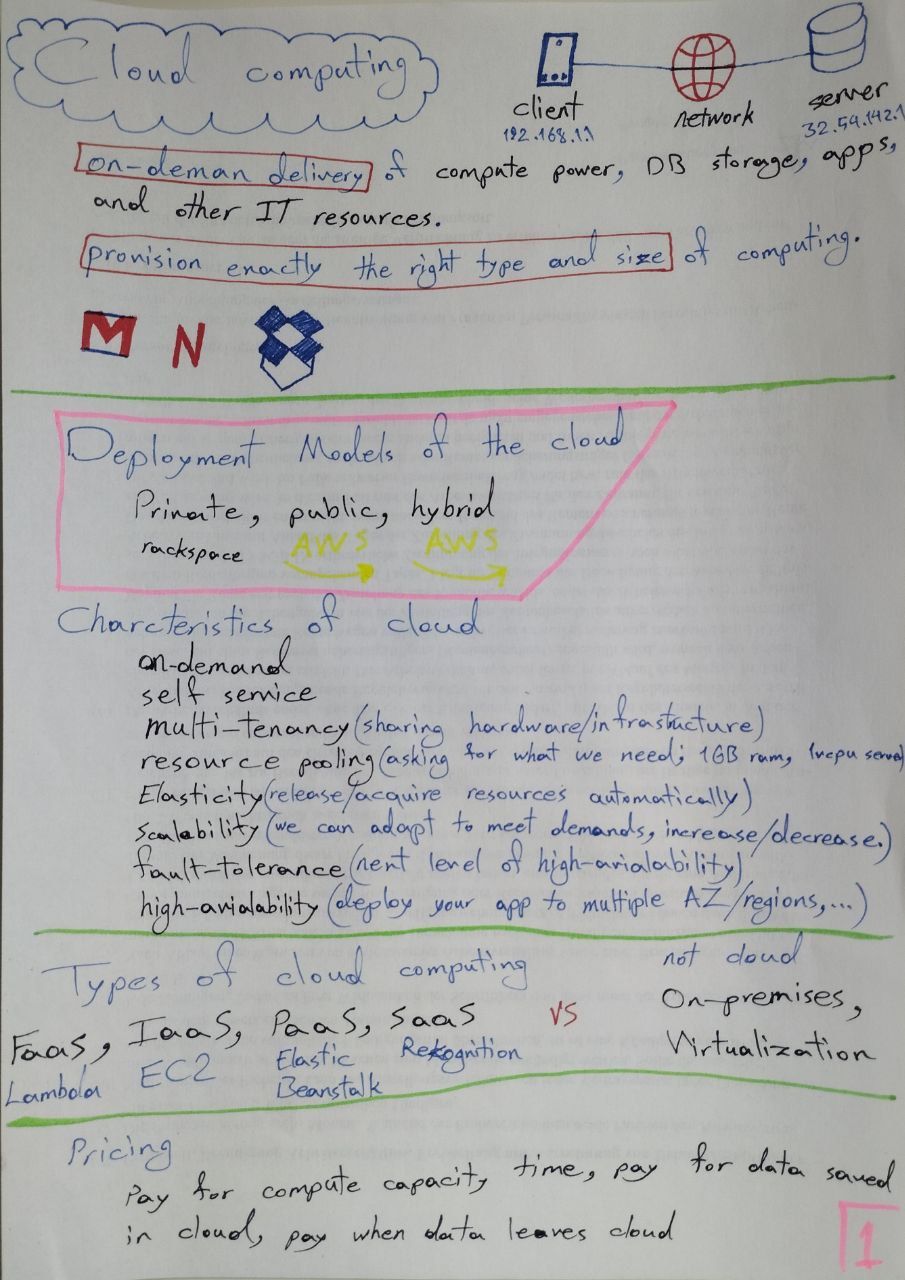 Cloud computing
client
192.168.1.1
network
server
32.54.142.1
on-deman delivery of compute power, DB storage, apps,
and other IT resources.
provision exactly the right type and size of computing.
M N
Deployment Models of the cloud
Private, public, hybrid
rackspace AWS AWS
Charcteristics of cloud
on-demand
self service
multi-tenancy (sharing hardware/infrastructure)
resource pooling (asking for what we need; 1GB ram, 1vcpu server)
Elasticity (release/acquire resources automatically)
Scalability (we can adapt to meet demands, increase/decrease.)
fault-tolerance (next level of high-avialability)
high-avialability (deploy your app to multiple AZ/regions,...)
Types of cloud computing
FaaS, IaaS, PaaS, SaaS
Lambda EC2 Elastic Rekognition
Beanstalk
VS
not cloud
On-premises,
Virtualization
Pricing
Pay for compute capacity time, pay for data saved
in cloud, pay when data leaves cloud
1